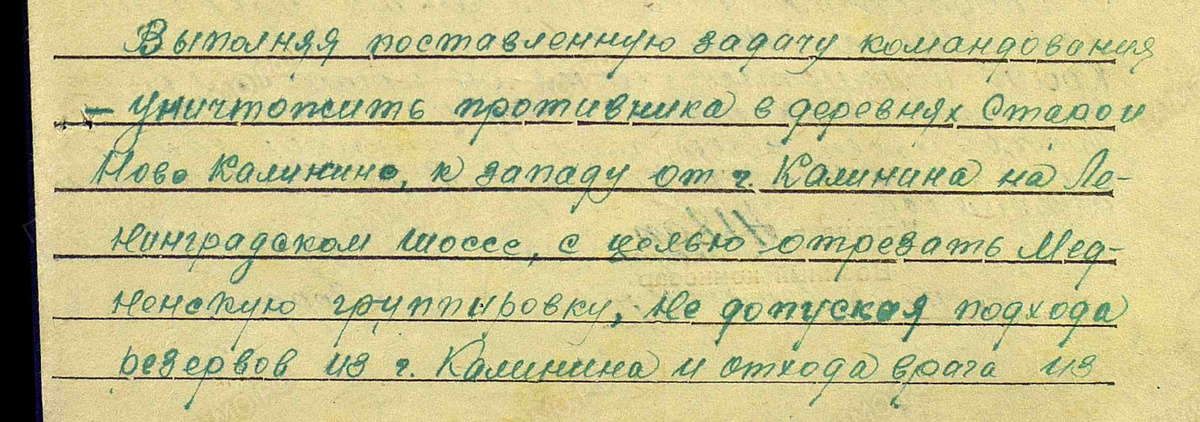 Выполняя поставленную задачу командования
– уничтожить противника в деревнях Старо и
Ново Калинино, к западу от г. Калинина на Ле-
нинградском шоссе, с целью отрезать Мед-
ненскую группировку, не допуская подхода
резервов из г. Калинина и отхода врага из